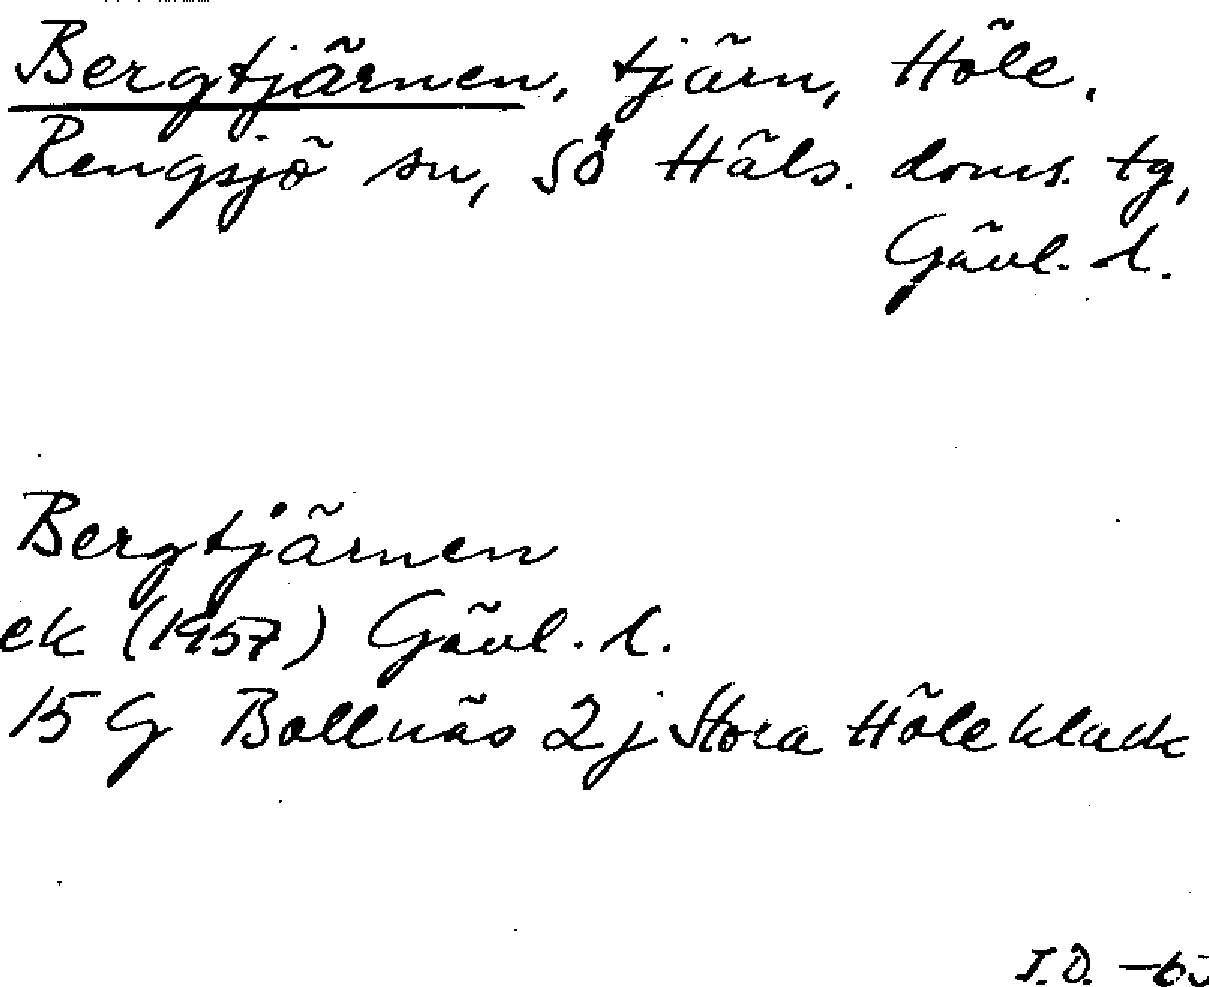 Bergtjärnen, tjärn, Höle.
Rengsjö sn, SÖ Häls. doms. tg,
Gävl. l.
Bergtjärnen
ek (1957) Gävl. l.
15 G Bollnäs 2 j Stora Höleklack
I.Ö.